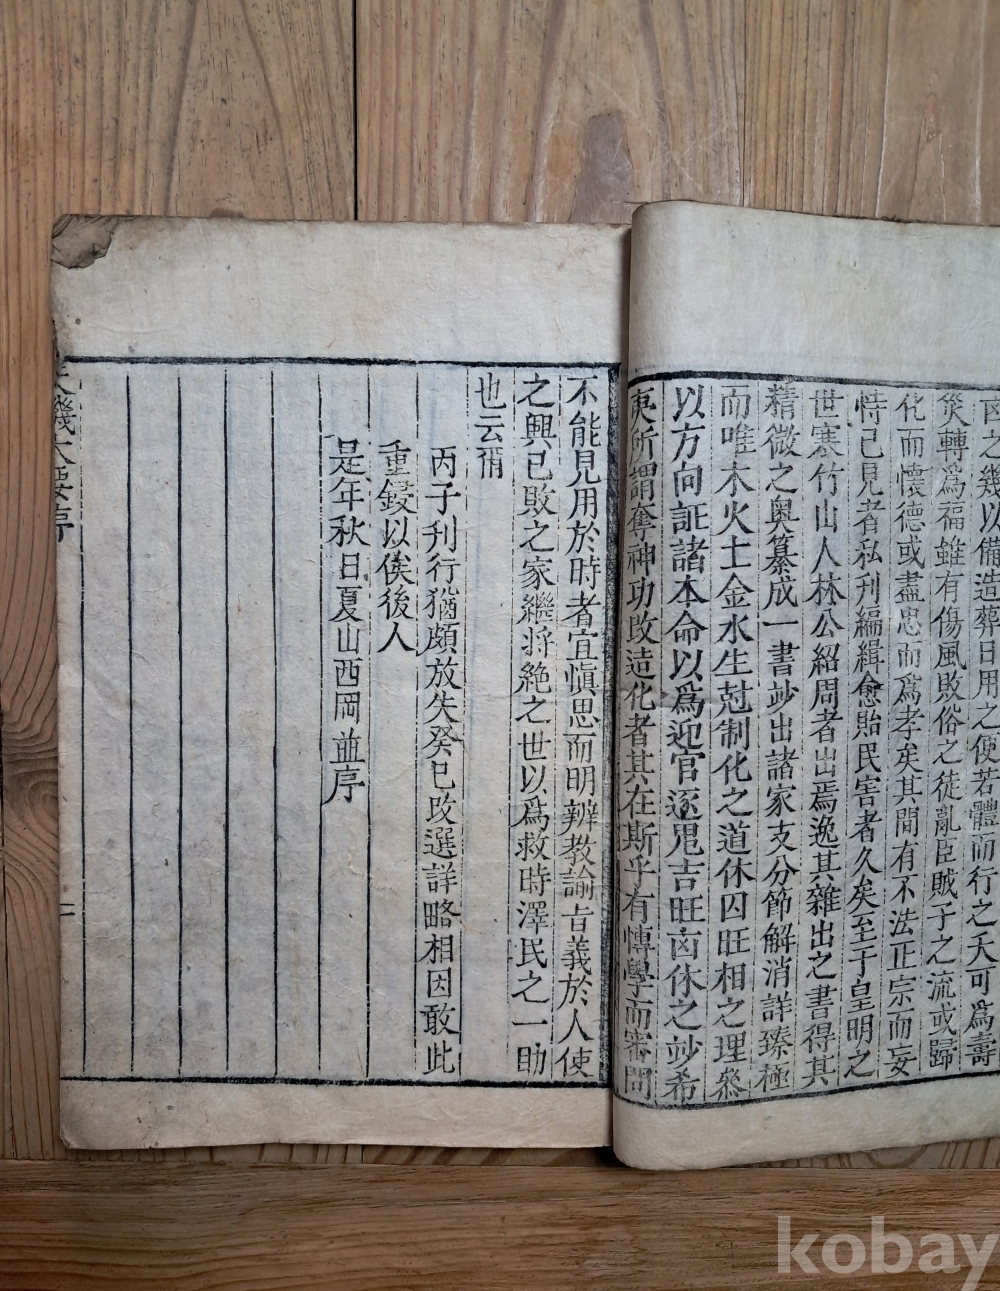 凶之幾以備造葬日用之便若體而行之夭可爲壽
災轉爲福雖有傷風敗俗之徒亂臣賊子之流或歸
化而懷德或盡忠而爲孝矣其間有不法正宗而妄
恃己見者私刊編緝愈貽民害者久矣至于皇明之
世寒竹山人林公紹周者出焉逸其雜出之書得其
精微之奥纂成一書竗出諸家支分節解消詳臻極
而唯木火土金水生尅制化之道休囚旺相之理叅
以方向証諸本命以爲迎官逐鬼吉旺凶休之竗希
夷所謂奪神功改造化者其在斯乎有慱學而審問
不能見用於時者宜愼思而明辨教諭旨義於人使
之興已敗之家繼将絶之世以爲救時澤民之一助
也云爾
丙子刋行猶頗放失癸巳改選詳略相因敢此
重鋟以俟後人
是年秋日夏山西岡並序
天機大要序
二
kobay